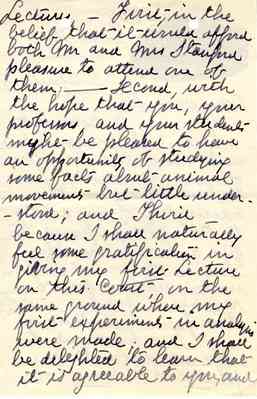 Lectures – First, in the
belief that it would afford
both Mr and Mrs Stanford
pleasure to attend one of
them, — Second, with
the hope that you, your
professors, and your students
might be pleased to have
an opportunity of studying
some facts about animal
movements but little under-
-stood; and Third
because I shall naturally
feel some gratification in
giving my first Lecture
on this Coast, on the
same ground where my
first experiments in analysis
were made. and I shall
be delighted to learn that
it is agreeable to you, and